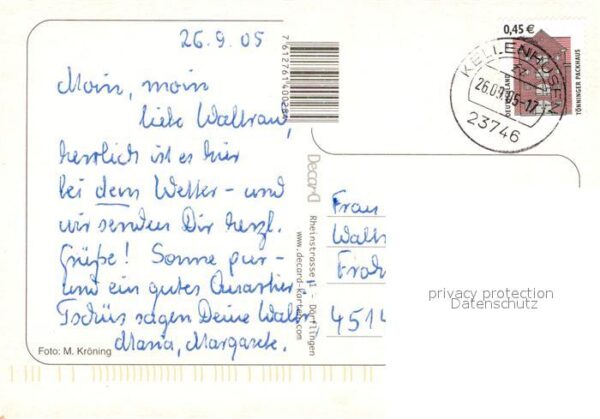 26.9.05
Moin, moin
liebe Waltraud,
herrlich ist es hier
bei dem Wetter - und
wir senden Dir herzl.
Grüße! Sonne pur -
und ein gutes Quartier.
Tschüs sagen Deine
Maria, Margarete.
Foto: M. Kröning
7612761400284
Decard
Rheinstrasse - Dörflingen
www.decard-karten.com
0,45 €
DEUTSCHLAND
TÖNNINGER PACKHAUS
KELLENHUSEN
26.09.05-17
23746
Frau
4514
privacy protection
Datenschutz